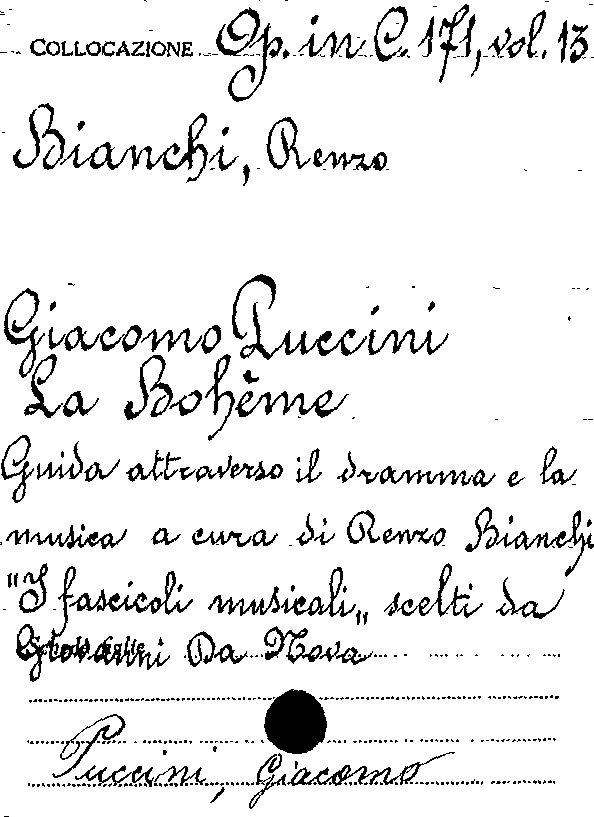 COLLOCAZIONE Op. in C. 171, vol. 13
Bianchi, Renzo
Giacomo Puccini
La Bohême
Guida attraverso il dramma e la
musica a cura di Renzo Bianchi
"I fascicoli musicali„ scelti da
Giovanni Da Nova
Puccini, Giacomo